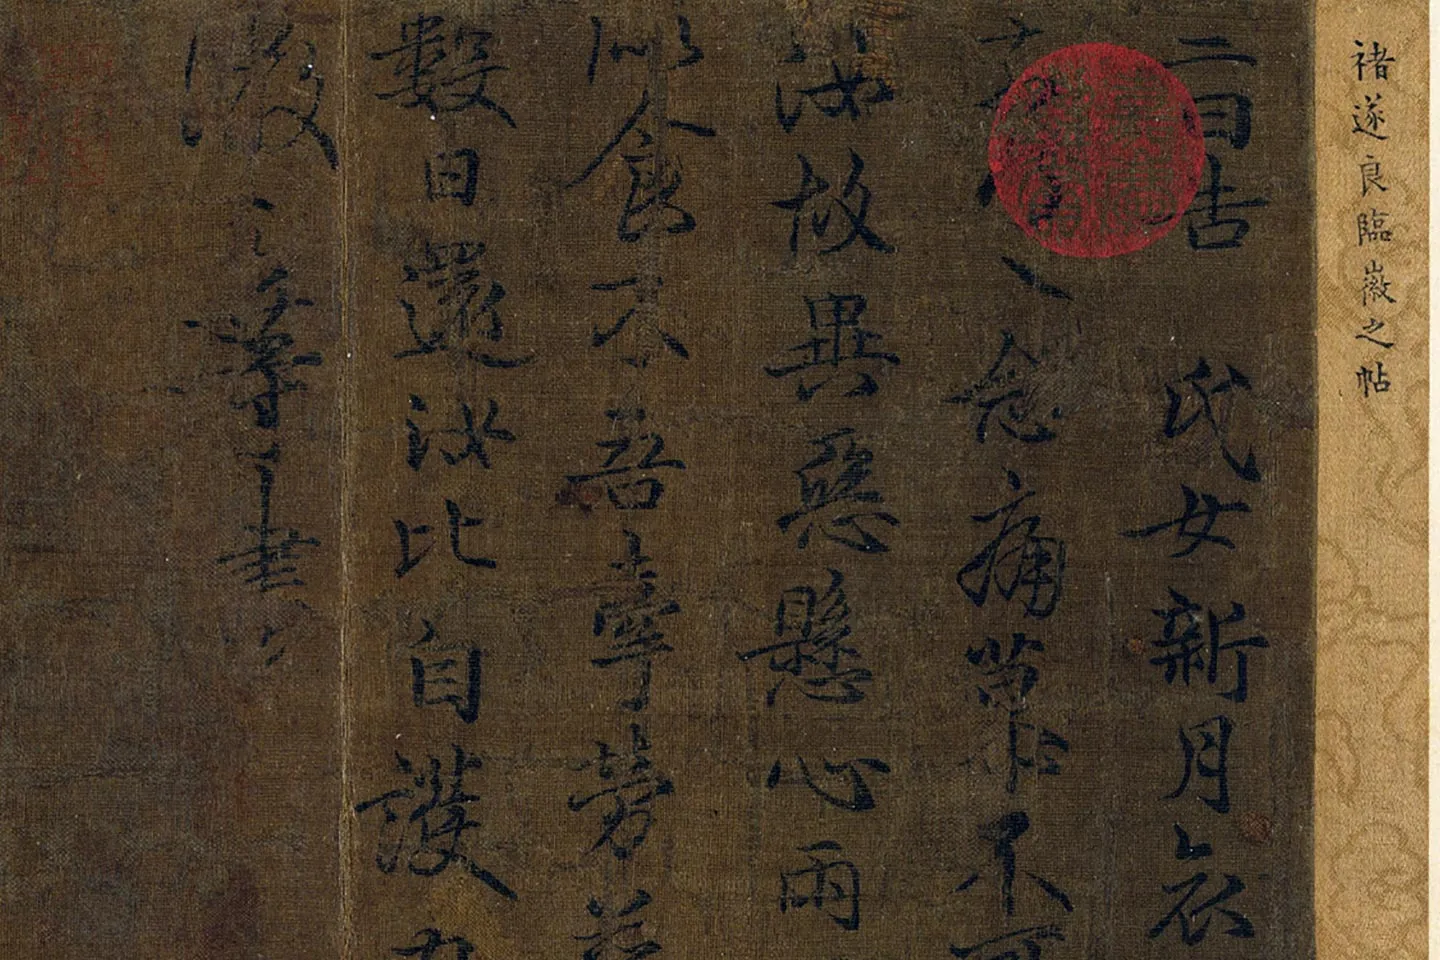 褚遂良臨徽之帖
二日告 氏女新月衣
念痛 不可
汝故異惡懸心雨
似食不吾牽勞並
數日還汝比自護力
徽之等書